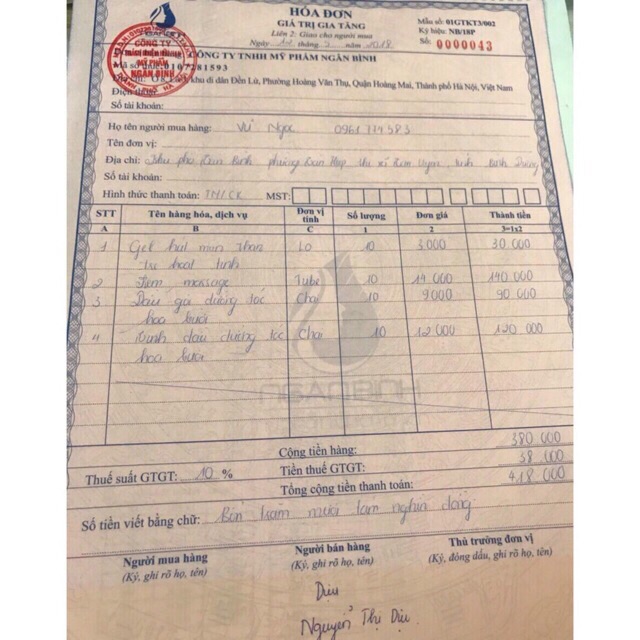 HÓA ĐƠN
GIÁ TRỊ GIA TĂNG
Liên 2: Giao cho người mua
Ngày tháng 5 năm 2018
Mẫu số: 01GTKT3/002
Ký hiệu: NB/18P
Số: 0000043
CÔNG TY
MỸ PHẨM
NGÂN BÌNH
CÔNG TY TNHH MỸ PHẨM NGÂN BÌNH
Mã số thuế: 0107281593
Địa chỉ: khu di dân Đền Lừ, Phường Hoàng Văn Thụ, Quận Hoàng Mai, Thành phố Hà Nội, Việt Nam
Điện thoại:
Số tài khoản:
Họ tên người mua hàng: Vũ Ngọc 0961714583
Tên đơn vị:
Địa chỉ: Khu phố Bình phường thị xã Tân Uyên, tỉnh Bình Dương
Số tài khoản:
Hình thức thanh toán: TM/CK MST:
STT Tên hàng hóa, dịch vụ Đơn vị tính Số lượng Đơn giá Thành tiền
A B C 1 2 3=1x2
1 Gel hút mụn than Lọ 10 3.000 30.000
tre hoạt tính
2 Kem massage Tube 10 14.000 140.000
3 Dầu gội dưỡng tóc Chai 10 9000 90.000
hoa bưởi
4 Tinh dầu dưỡng tóc Chai 10 12.000 120.000
hoa bưởi
Cộng tiền hàng: 380.000
Thuế suất GTGT: 10 % Tiền thuế GTGT: 38.000
Tổng cộng tiền thanh toán: 418.000
Số tiền viết bằng chữ: Bốn trăm mười tám nghìn đồng
Người mua hàng Người bán hàng Thủ trưởng đơn vị
(Ký, ghi rõ họ, tên) (Ký, ghi rõ họ, tên) (Ký, đóng dấu, ghi rõ họ, tên)
Dịu
Nguyễn Thị Dịu